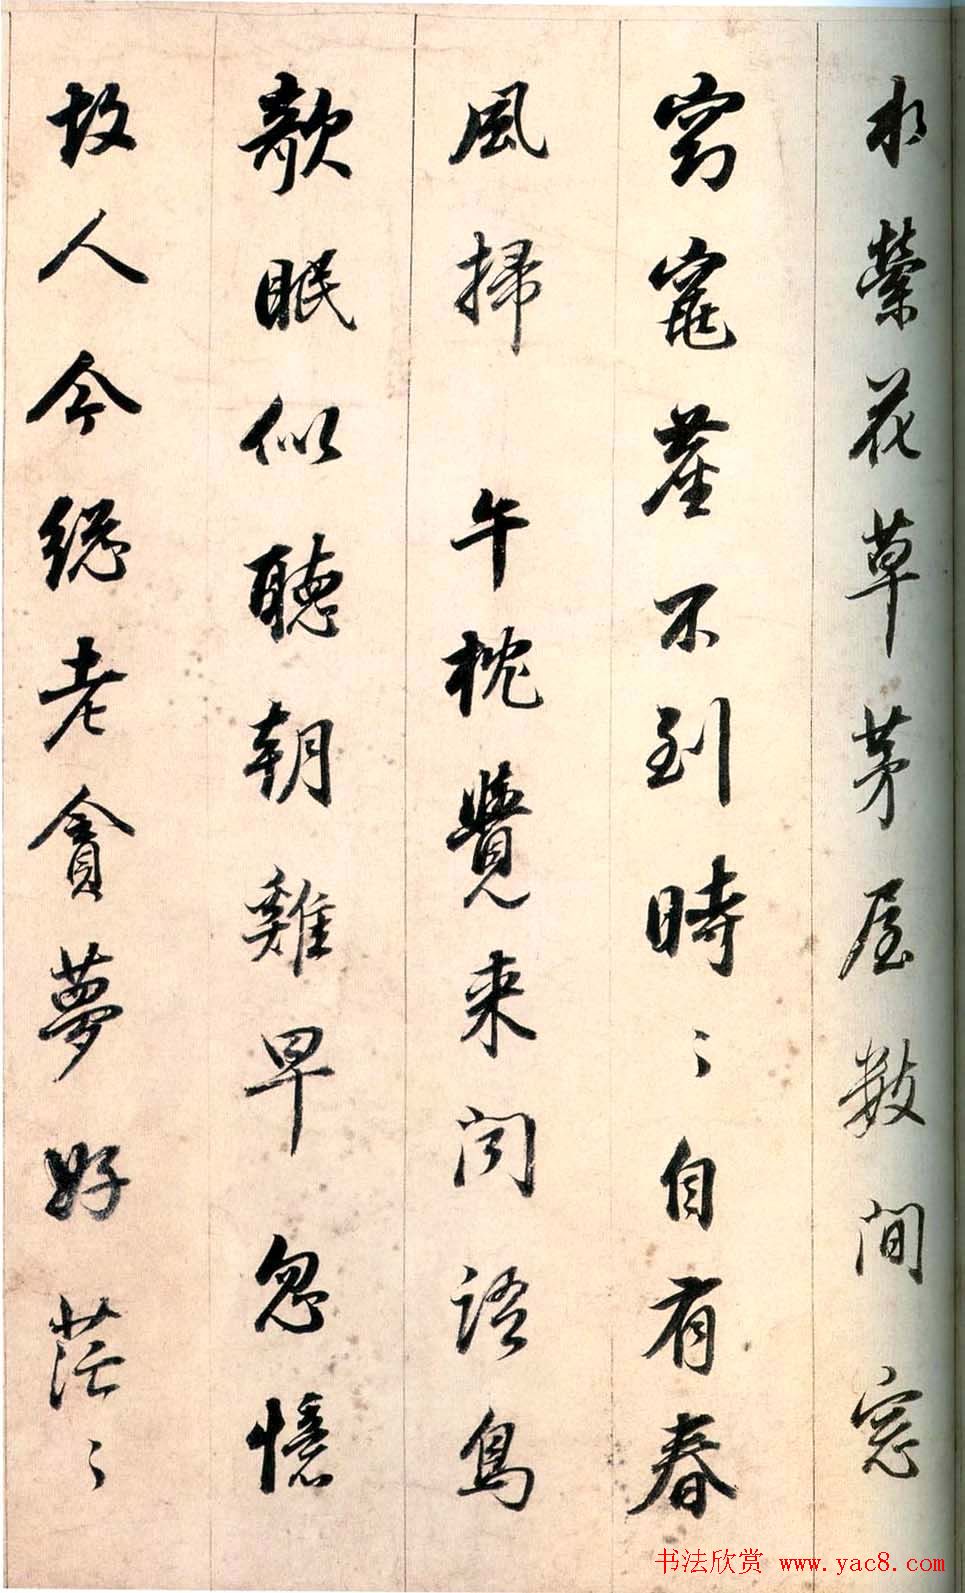 水縈花草茅屋數間窓
窈窕塵不到時〻自有春
風掃 午枕覺来聞語鳥
欹眠似聽朝雞早忽憶
故人今總老貪夢好茫〻
书法欣赏 www.yac8.com